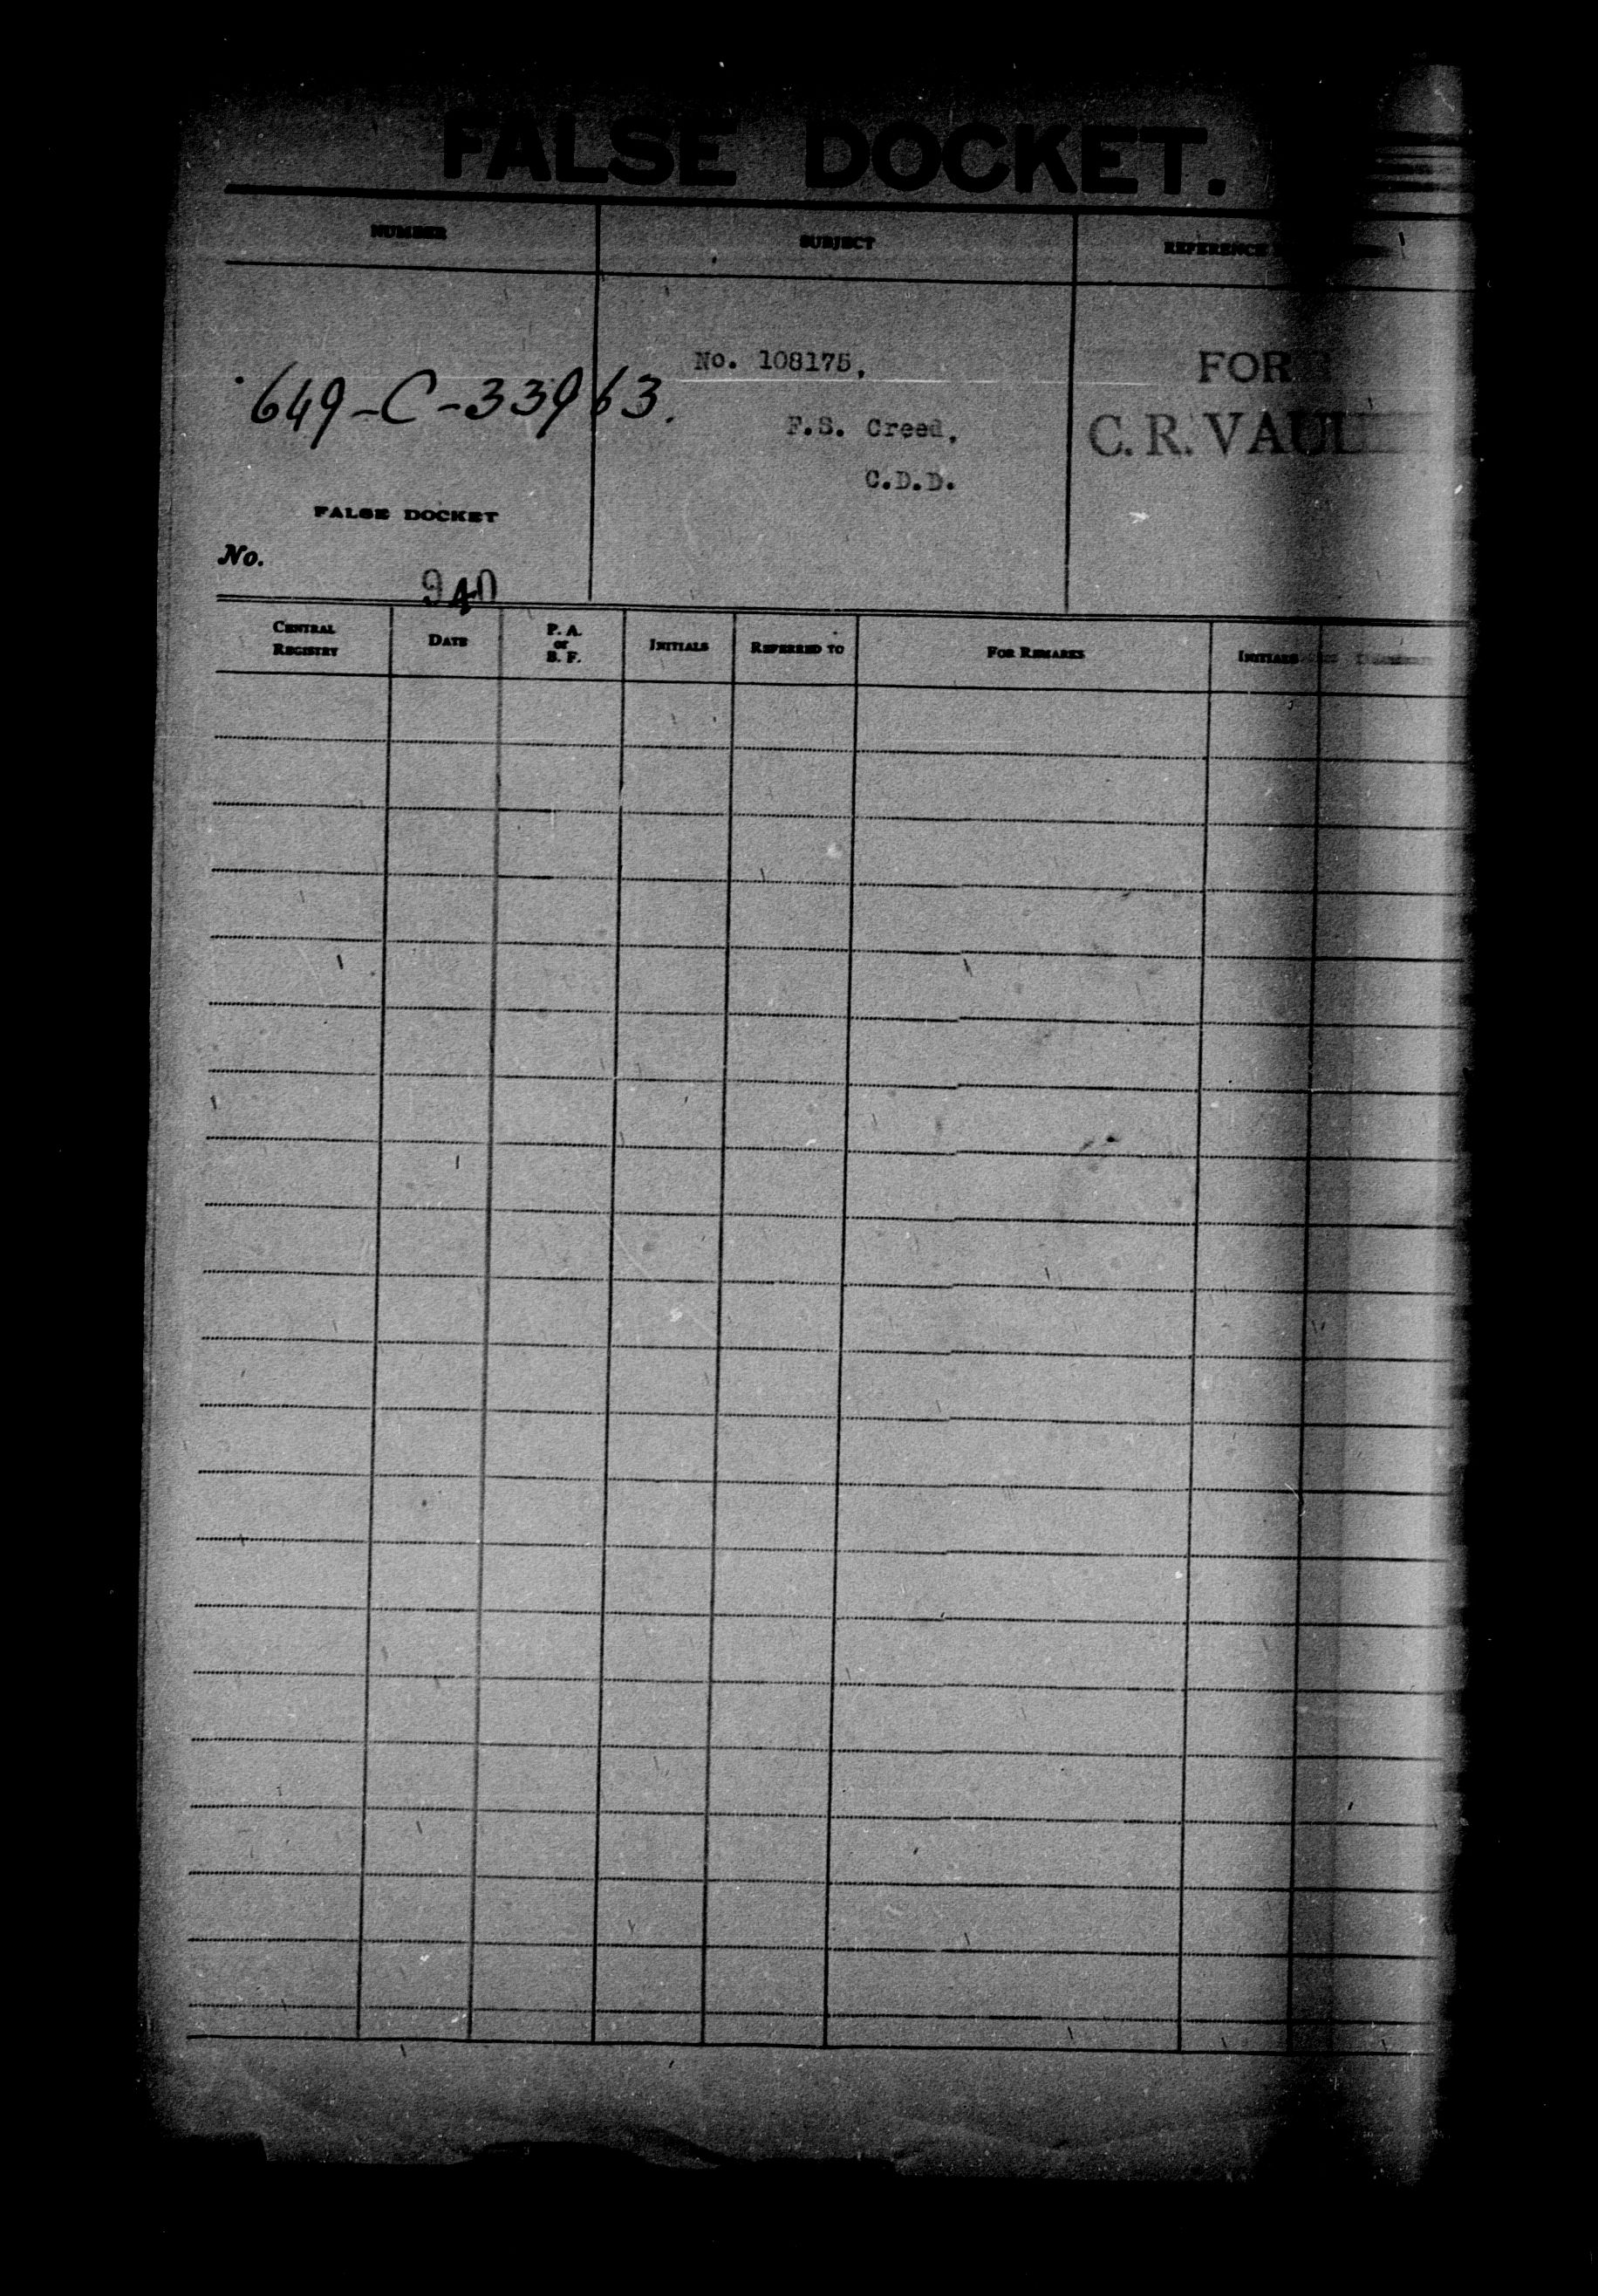 FALSE DOCKET.
NUMBER SUBJECT REFERENCE
649-C-33963.
No. 108175.
F.S. Creed,
C.D.D.
FOR
C. R. VAUL
FALSE DOCKET
No.
940
CENTRAL REGISTRY DATE P. A. or B. F. INITIALS REFERRED TO FOR REMARKS INITIALS